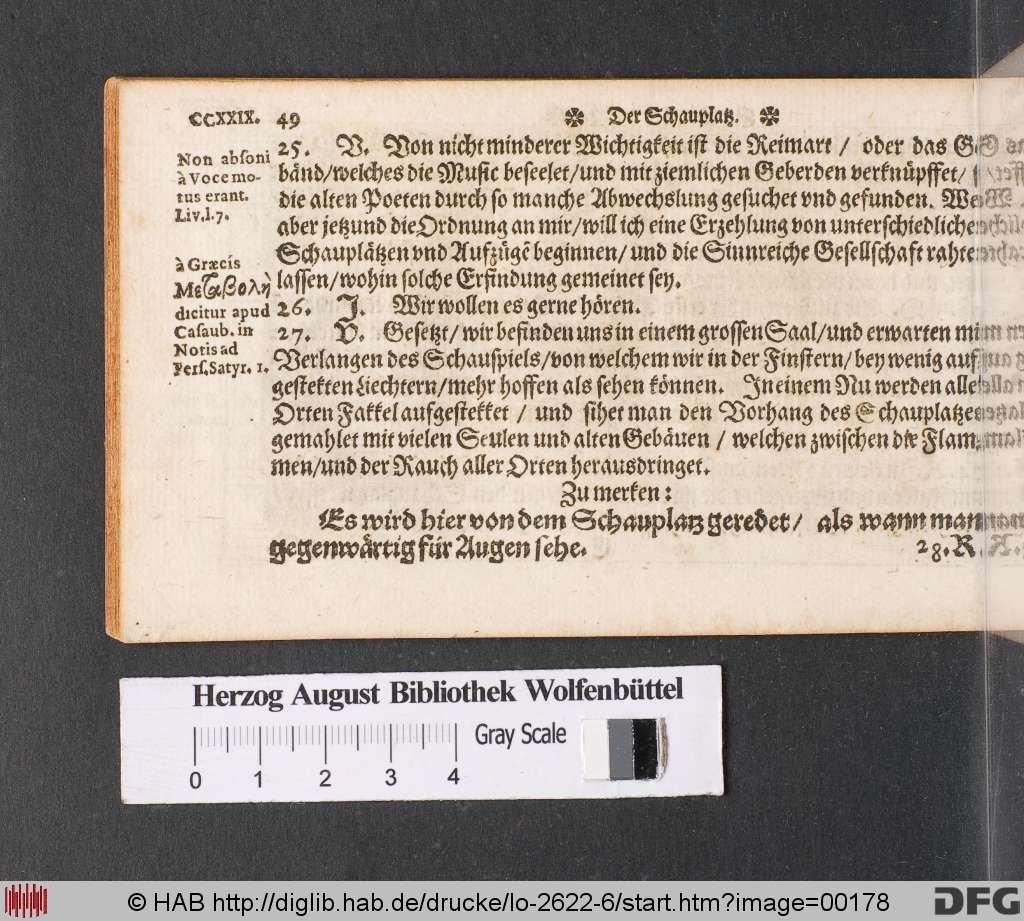 CCXXIX. 49 Der Schauplatz.
Non absoni
à Voce mo-
tus erant.
Liv. l. 7.
à Græcis
Μεταβολὴ
dicitur apud
Casaub. in
Notis ad
Pers. Satyr. 1.
25. V. Von nicht minderer Wichtigkeit ist die Reimart / oder das
bänd/welches die Music beseelet/und mit ziemlichen Geberden verknüpffet/
die alten Poeten durch so manche Abwechslung gesuchet vnd gefunden.
aber jetzund die Ordnung an mir/will ich eine Erzehlung von unterschiedlichen
Schauplätzen vnd Aufzügē beginnen/und die Sinnreiche Gesellschaft rahten
lassen/wohin solche Erfindung gemeinet sey.
26. J. Wir wollen es gerne hören.
27. V. Gesetzt/wir befinden uns in einem grossen Saal/und erwarten mit
Verlangen des Schauspiels/von welchem wir in der Finstern/bey wenig auf
gestekten Liechtern/mehr hoffen als sehen können. Jn einem Nu werden
Orten Fakkel aufgestekket / und sihet man den Vorhang des Schauplatzes
gemahlet mit vielen Seulen und alten Gebäuen / welchen zwischen die Flam-
men/und der Rauch aller Orten herausdringet.
Zu merken:
Es wird hier von dem Schauplatz geredet/ als wann man
gegenwärtig für Augen sehe. 28. R.
Herzog August Bibliothek Wolfenbüttel
Gray Scale
0 1 2 3 4
© HAB http://diglib.hab.de/drucke/lo-2622-6/start.htm?image=00178 DFG